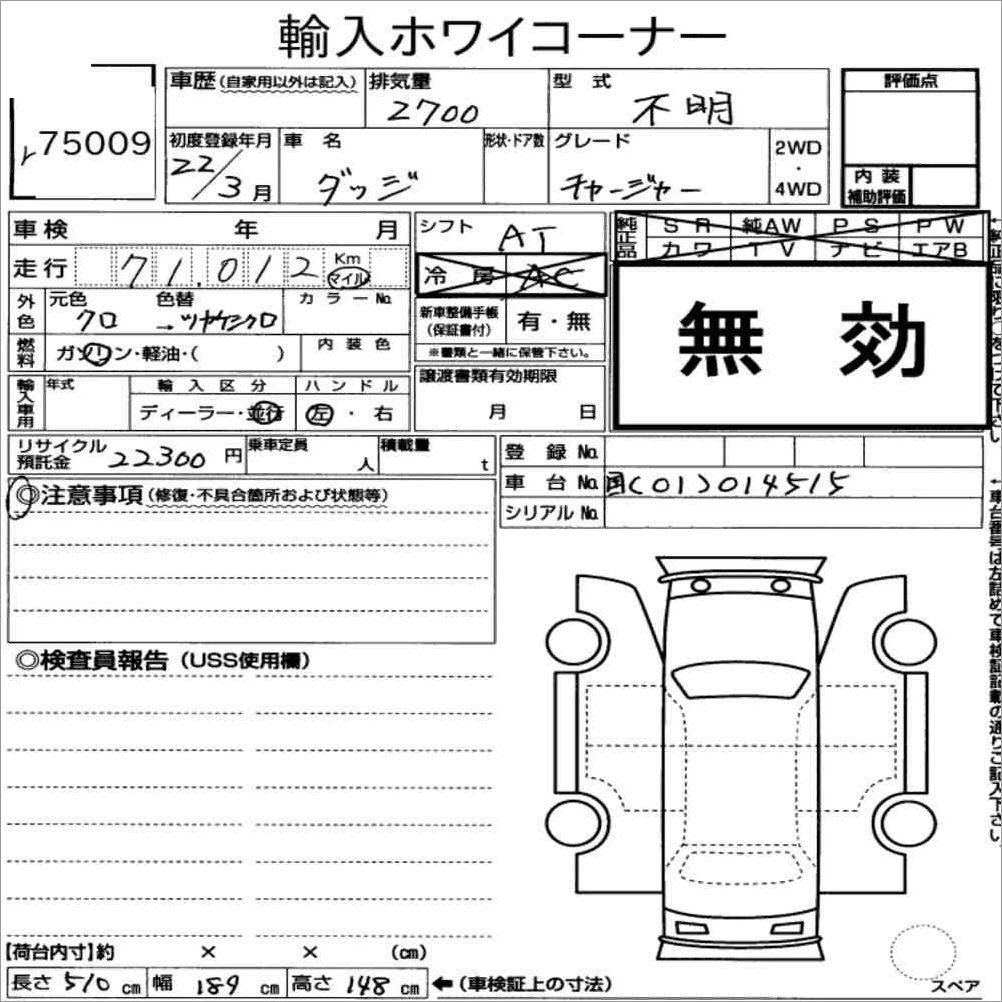 輸入ホワイコーナー
75009
車歴(自家用以外は記入)
排気量
2700
型 式
不明
評価点
初度登録年月
22/3月
車 名
ダッジ
形状・ドア数
グレード
チャージャー
2WD
・
4WD
内 装
補助評価
車検 年 月
走行 71.012 Km
マイル
シフト
AT
冷 房 AC
純正品
S R 純AW P S P W
カワ T V ナビ エアB
外色
元色 色替 カラーNo.
クロ →ツヤケシクロ
新車整備手帳
(保証書付)
有・無
※書類と一緒に保管下さい。
無 効
燃料
ガソリン・軽油・( )
内 装 色
輸入車用
年式
輸 入 区 分
ハ ン ド ル
ディーラー・並行
左 ・ 右
譲渡書類有効期限
月 日
リサイクル
預託金
22300 円
乗車定員
人
積載量
t
登 録 No.
車 台 No. 国[01]014515
シリアル No.
◎注意事項(修復・不具合箇所および状態等)
◎検査員報告(USS使用欄)
←車台番号は左詰めで車検証記載の通りご記入下さい。
【荷台内寸】約 × × (cm)
長さ 510 cm 幅 189 cm 高さ 148 cm ←(車検証上の寸法)
スペア